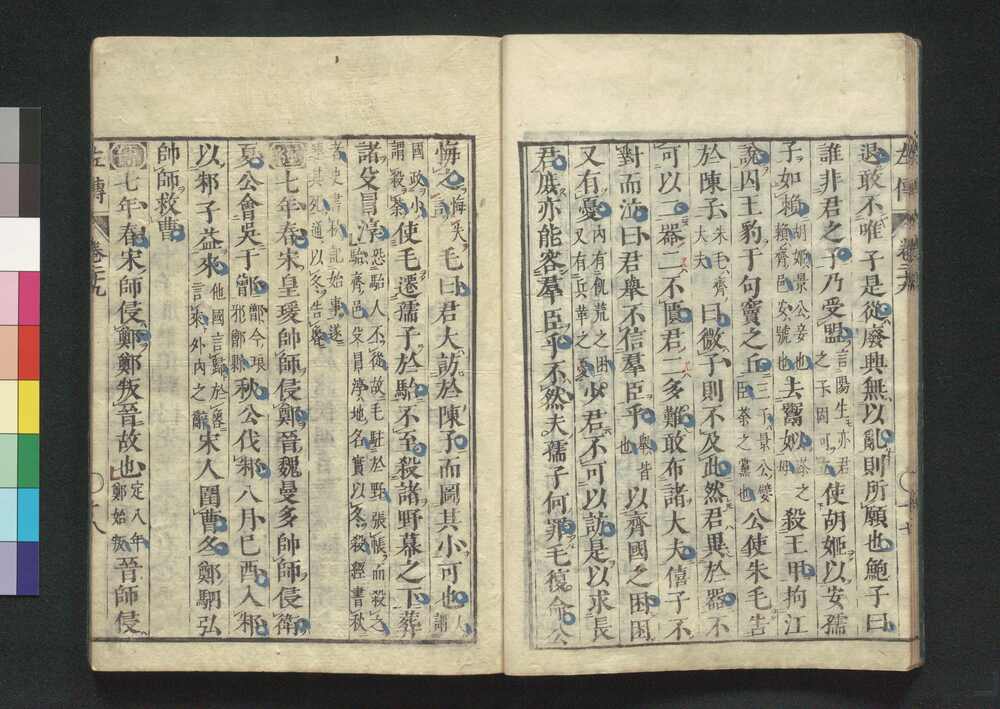 左傳 卷二十九 十七
退敢不唯子是從廢興無以亂則所願也鮑子曰
誰非君之子乃受盟言陽生亦君之子固可立使胡姬以安孺
子如賴胡姬景公妾也賴齊邑安號也去鬻姒荼之母殺王甲拘江
說囚王豹于句竇之丘三子景公嬖臣荼之黨也公使朱毛告
於陳子朱毛齊大夫曰微子則不及此然君異於器不
可以二器二不匱君二多難敢布諸大夫僖子不
對而泣曰君舉不信羣臣乎舉皆也以齊國之困困
又有憂內有飢荒之困又有兵革之憂少君不可以訪是以求長
君庶亦能容羣臣乎不然夫孺子何罪毛復命公
悔之悔失言毛曰君大訪於陳子而圖其小可也大謂
國政小謂殺荼使毛遷孺子於駘不至殺諸野幕之下葬
諸殳冒淳恐駘人不從故毛駐於野張帳而殺之駘齊邑殳冒淳地名實以冬殺經書秋
者史書秋記始事遂連其死通以冬告魯
經七年春宋皇瑗帥師侵鄭晉魏曼多帥師侵衞
夏公會吳于鄫鄫今琅邪鄫縣秋公伐邾八月己酉入邾
以邾子益來他國言歸於魯言來外內之辭宋人圍曹冬鄭駟弘
帥師救曹
傳七年春宋師侵鄭鄭叛晉故也定八年鄭始叛晉師侵
左傳 卷二十九 十八